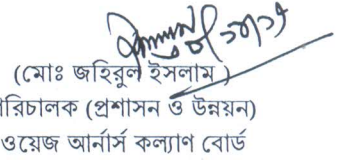 (মোঃ জহিরুল ইসলাম)
রিচালক (প্রশাসন ও উন্নয়ন)
ওয়েজ আর্নার্স কল্যাণ বোর্ড